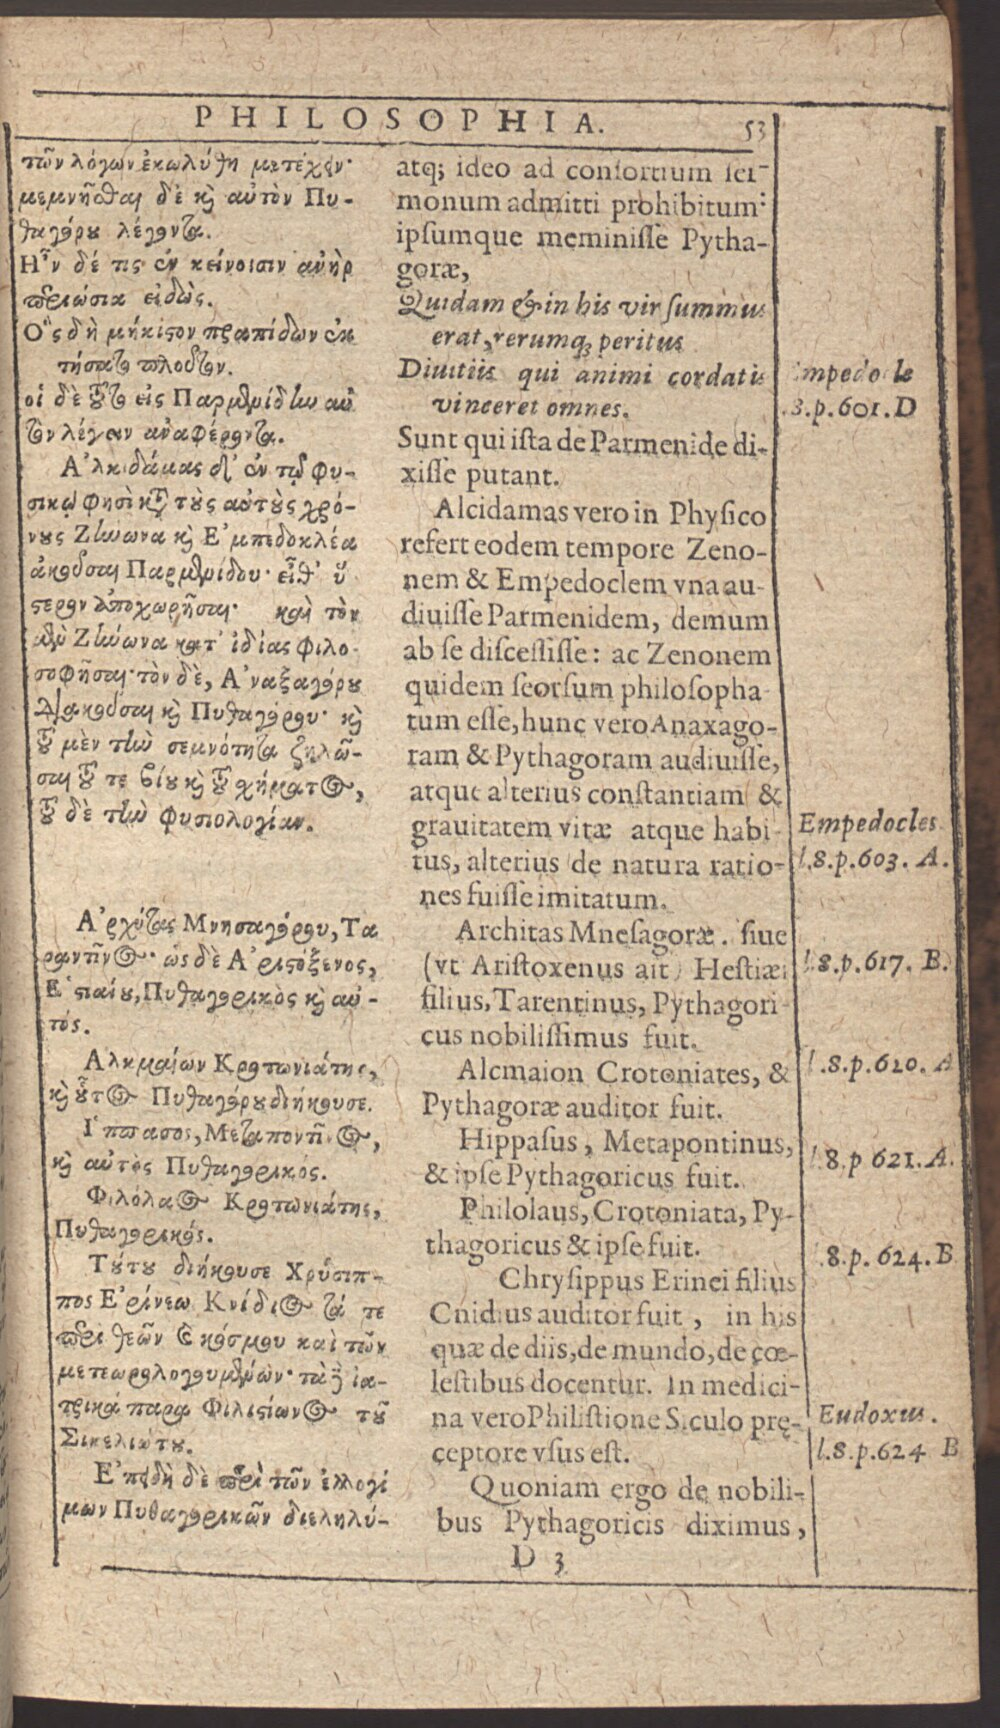 PHILOSOPHIA. 53
τῶν λόγων ἐκωλύθη μετέχειν·
μεμνῆσθαι δὲ κὶ αὐτὸν Πυ-
θαγόρου λέγοντα.
Η῏ν δέ τις ἐν κείνοισιν ἀνὴρ
περιώσια εἰδὼς.
Ο῝ς δὴ μήκιστον πραπίδων ἐκ
τήσατο πλοῦτον.
οἱ δὲ τοῦτο εἰς Παρμενίδην αὐ
τὸν λέγειν ἀναφέροντα.
Α᾿λκιδάμας δ᾿ ἐν τῷ φυ-
σικῷ φησὶ κατὰ τοὺς αὐτοὺς χρό-
νους Ζήνωνα κὶ Ε᾿μπεδοκλέα
ἀκοῦσαι Παρμενίδου· εἶθ᾿ ὕ
στερον ἀποχωρῆσαι· καὶ τὸν
μὲν Ζήνωνα κατ᾿ ἰδίας φιλο-
σοφῆσαι· τὸν δὲ, Α᾿ναξαγόρου
διακοῦσαι κὶ Πυθαγόρου· κὶ
τοῦ μὲν τὴν σεμνότητα ζηλῶ-
σαι τοῦ τε βίου κὶ τοῦ χήματος,
τοῦ δὲ τὴν φυσιολογίαν.
Α᾿ρχύτας Μνησαγόρου, Τα
ραντῖνος· ὡς δὲ Α᾿ριστόξενος,
Ε῾στιαίου, Πυθαγορικὸς κὶ αὐ-
τός.
Αλκμαίων Κροτωνιάτης,
κὶ οὗτος Πυθαγόρου διήκουσε.
Ι῞ππασος, Μεταποντῖνος,
κὶ αὐτὸς Πυθαγορικός.
Φιλόλαος Κροτωνιάτης,
Πυθαγορικός.
Τούτου διήκουσε Χρύσιπ-
πος Ε᾿ρίνεω Κνίδιος τά τε
περὶ θεῶν & κόσμου καὶ τῶν
μετεωρολογουμένων· τὰ δὲ ἰα-
τρικὰ παρὰ Φιλιστίωνος τοῦ
Σικελιώτου.
Ε᾿πειδὴ δὲ περὶ τῶν ἐλλογί
μων Πυθαγορικῶν διεληλύ-
atq; ideo ad consortium ser-
monum admitti prohibitum:
ipsumque meminisse Pytha-
goræ,
Quidam & in his vir summus
erat, rerumq; peritus
Diuitiis qui animi cordatis
vinceret omnes.
Sunt qui ista de Parmenide di-
xisse putant.
Alcidamas vero in Physico
refert eodem tempore Zeno-
nem & Empedoclem vna au-
diuisse Parmenidem, demum
ab se discessisse: ac Zenonem
quidem seorsum philosopha-
tum esse, hunc vero Anaxago-
ram & Pythagoram audiuisse,
atque alterius constantiam &
grauitatem vitæ atque habi-
tus, alterius de natura ratio-
nes fuisse imitatum.
Architas Mnesagoræ. siue
(vt Aristoxenus ait) Hestiæi
filius, Tarentinus, Pythagori-
cus nobilissimus fuit.
Alcmaion Crotoniates, &
Pythagoræ auditor fuit.
Hippasus, Metapontinus,
& ipse Pythagoricus fuit.
Philolaus, Crotoniata, Py-
thagoricus & ipse fuit.
Chrysippus Erinei filius
Cnidius auditor fuit, in his
quæ de diis, de mundo, de cœ-
lestibus docentur. In medici-
na vero Philistione Siculo prę-
ceptore vsus est.
Quoniam ergo de nobili-
bus Pythagoricis diximus,
D 3
Empedocle
8.p.601.D
Empedocles
l.8.p.603. A.
l.8.p.617. B.
l.8.p.620. A
l.8.p 621. A.
l.8.p. 624. B
Eudoxus.
l.8.p.624 B